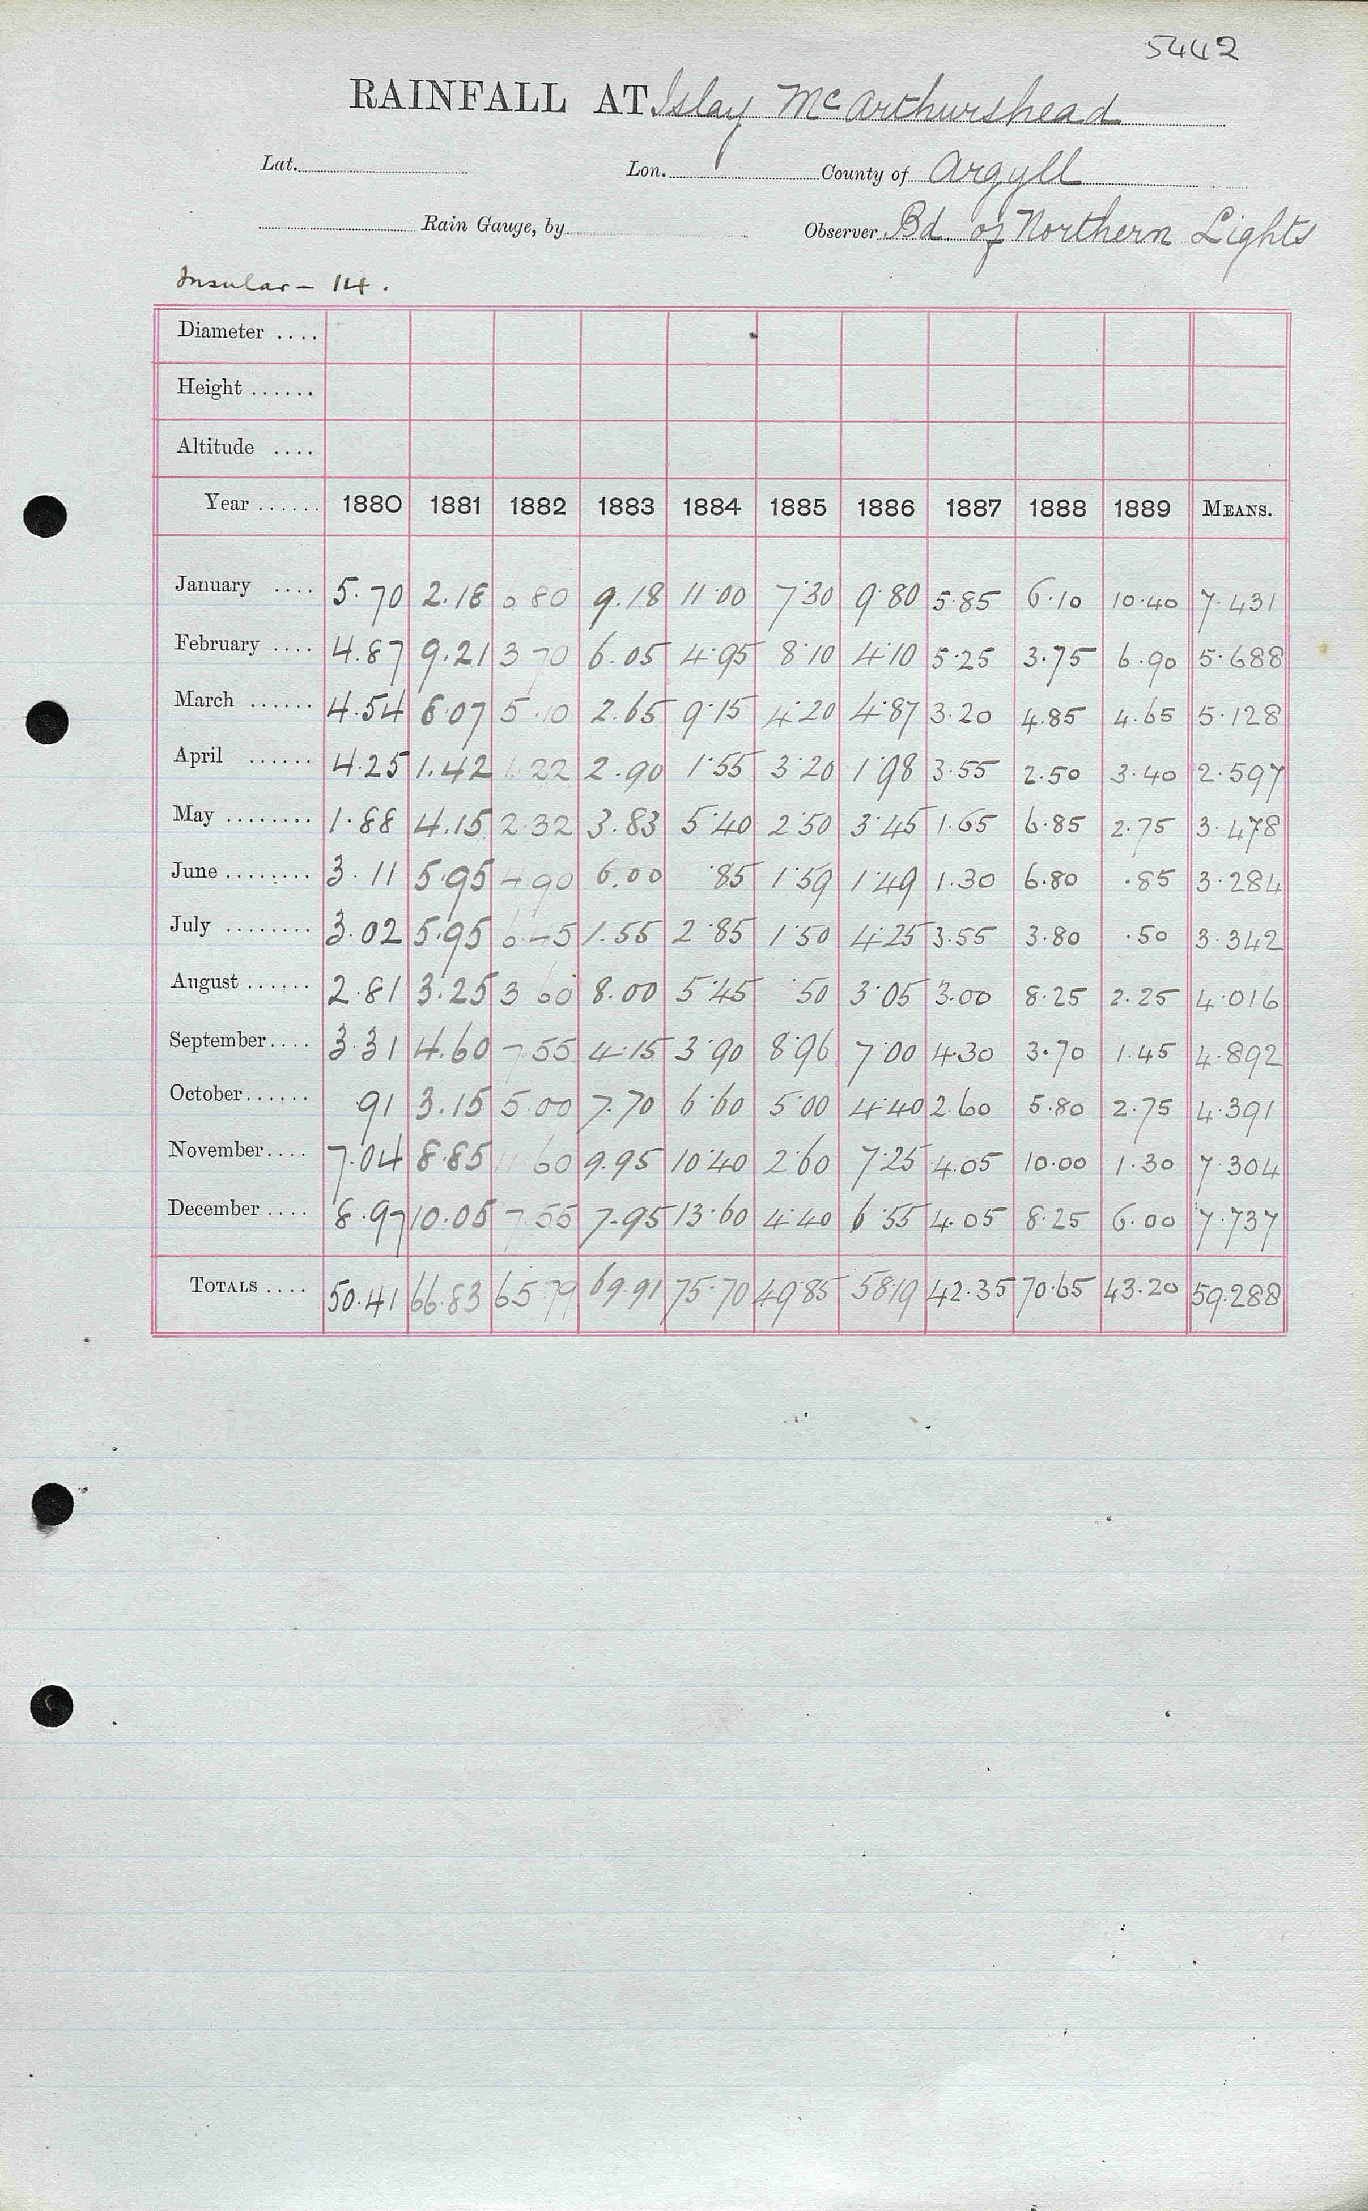 5442
RAINFALL AT Islay McArthurshead
Lat. Lon. County of Argyll
Rain Gauge, by Observer Bd. of Northern Lights
Insular - 14.
Diameter ....
Height ......
Altitude ....
Year ...... 1880 1881 1882 1883 1884 1885 1886 1887 1888 1889 MEANS.
January .... 5.70 2.18 6.80 9.18 11.00 7.30 9.80 5.85 6.10 10.40 7.431
February .... 4.87 9.21 3.70 6.05 4.95 8.10 4.10 5.25 3.75 6.90 5.688
March ...... 4.54 8.07 5.10 2.65 9.15 4.20 4.87 3.20 4.85 4.65 5.128
April ...... 4.25 1.42 1.22 2.90 1.55 3.20 1.98 3.55 2.50 3.40 2.597
May ........ 1.88 4.15 2.32 3.83 5.40 2.50 3.45 1.65 6.85 2.75 3.478
June ........ 3.11 5.95 4.90 6.00 .85 1.59 1.49 1.30 6.80 .85 3.284
July ........ 3.02 5.95 6.45 1.55 2.85 1.50 4.25 3.55 3.80 .50 3.342
August ...... 2.81 3.25 3.60 8.00 5.45 .50 3.05 3.00 8.25 2.25 4.016
September .... 3.31 4.60 7.55 4.15 3.90 8.96 7.00 4.30 3.70 1.45 4.892
October ...... .91 3.15 5.00 7.70 6.60 5.00 4.40 2.60 5.80 2.75 4.391
November .... 7.04 8.85 11.60 9.95 10.40 2.60 7.25 4.05 10.00 1.30 7.304
December .... 8.97 10.05 7.55 7.95 13.60 4.40 6.55 4.05 8.25 6.00 7.737
TOTALS .... 50.41 66.83 65.79 69.91 75.70 49.85 58.19 42.35 70.65 43.20 59.288